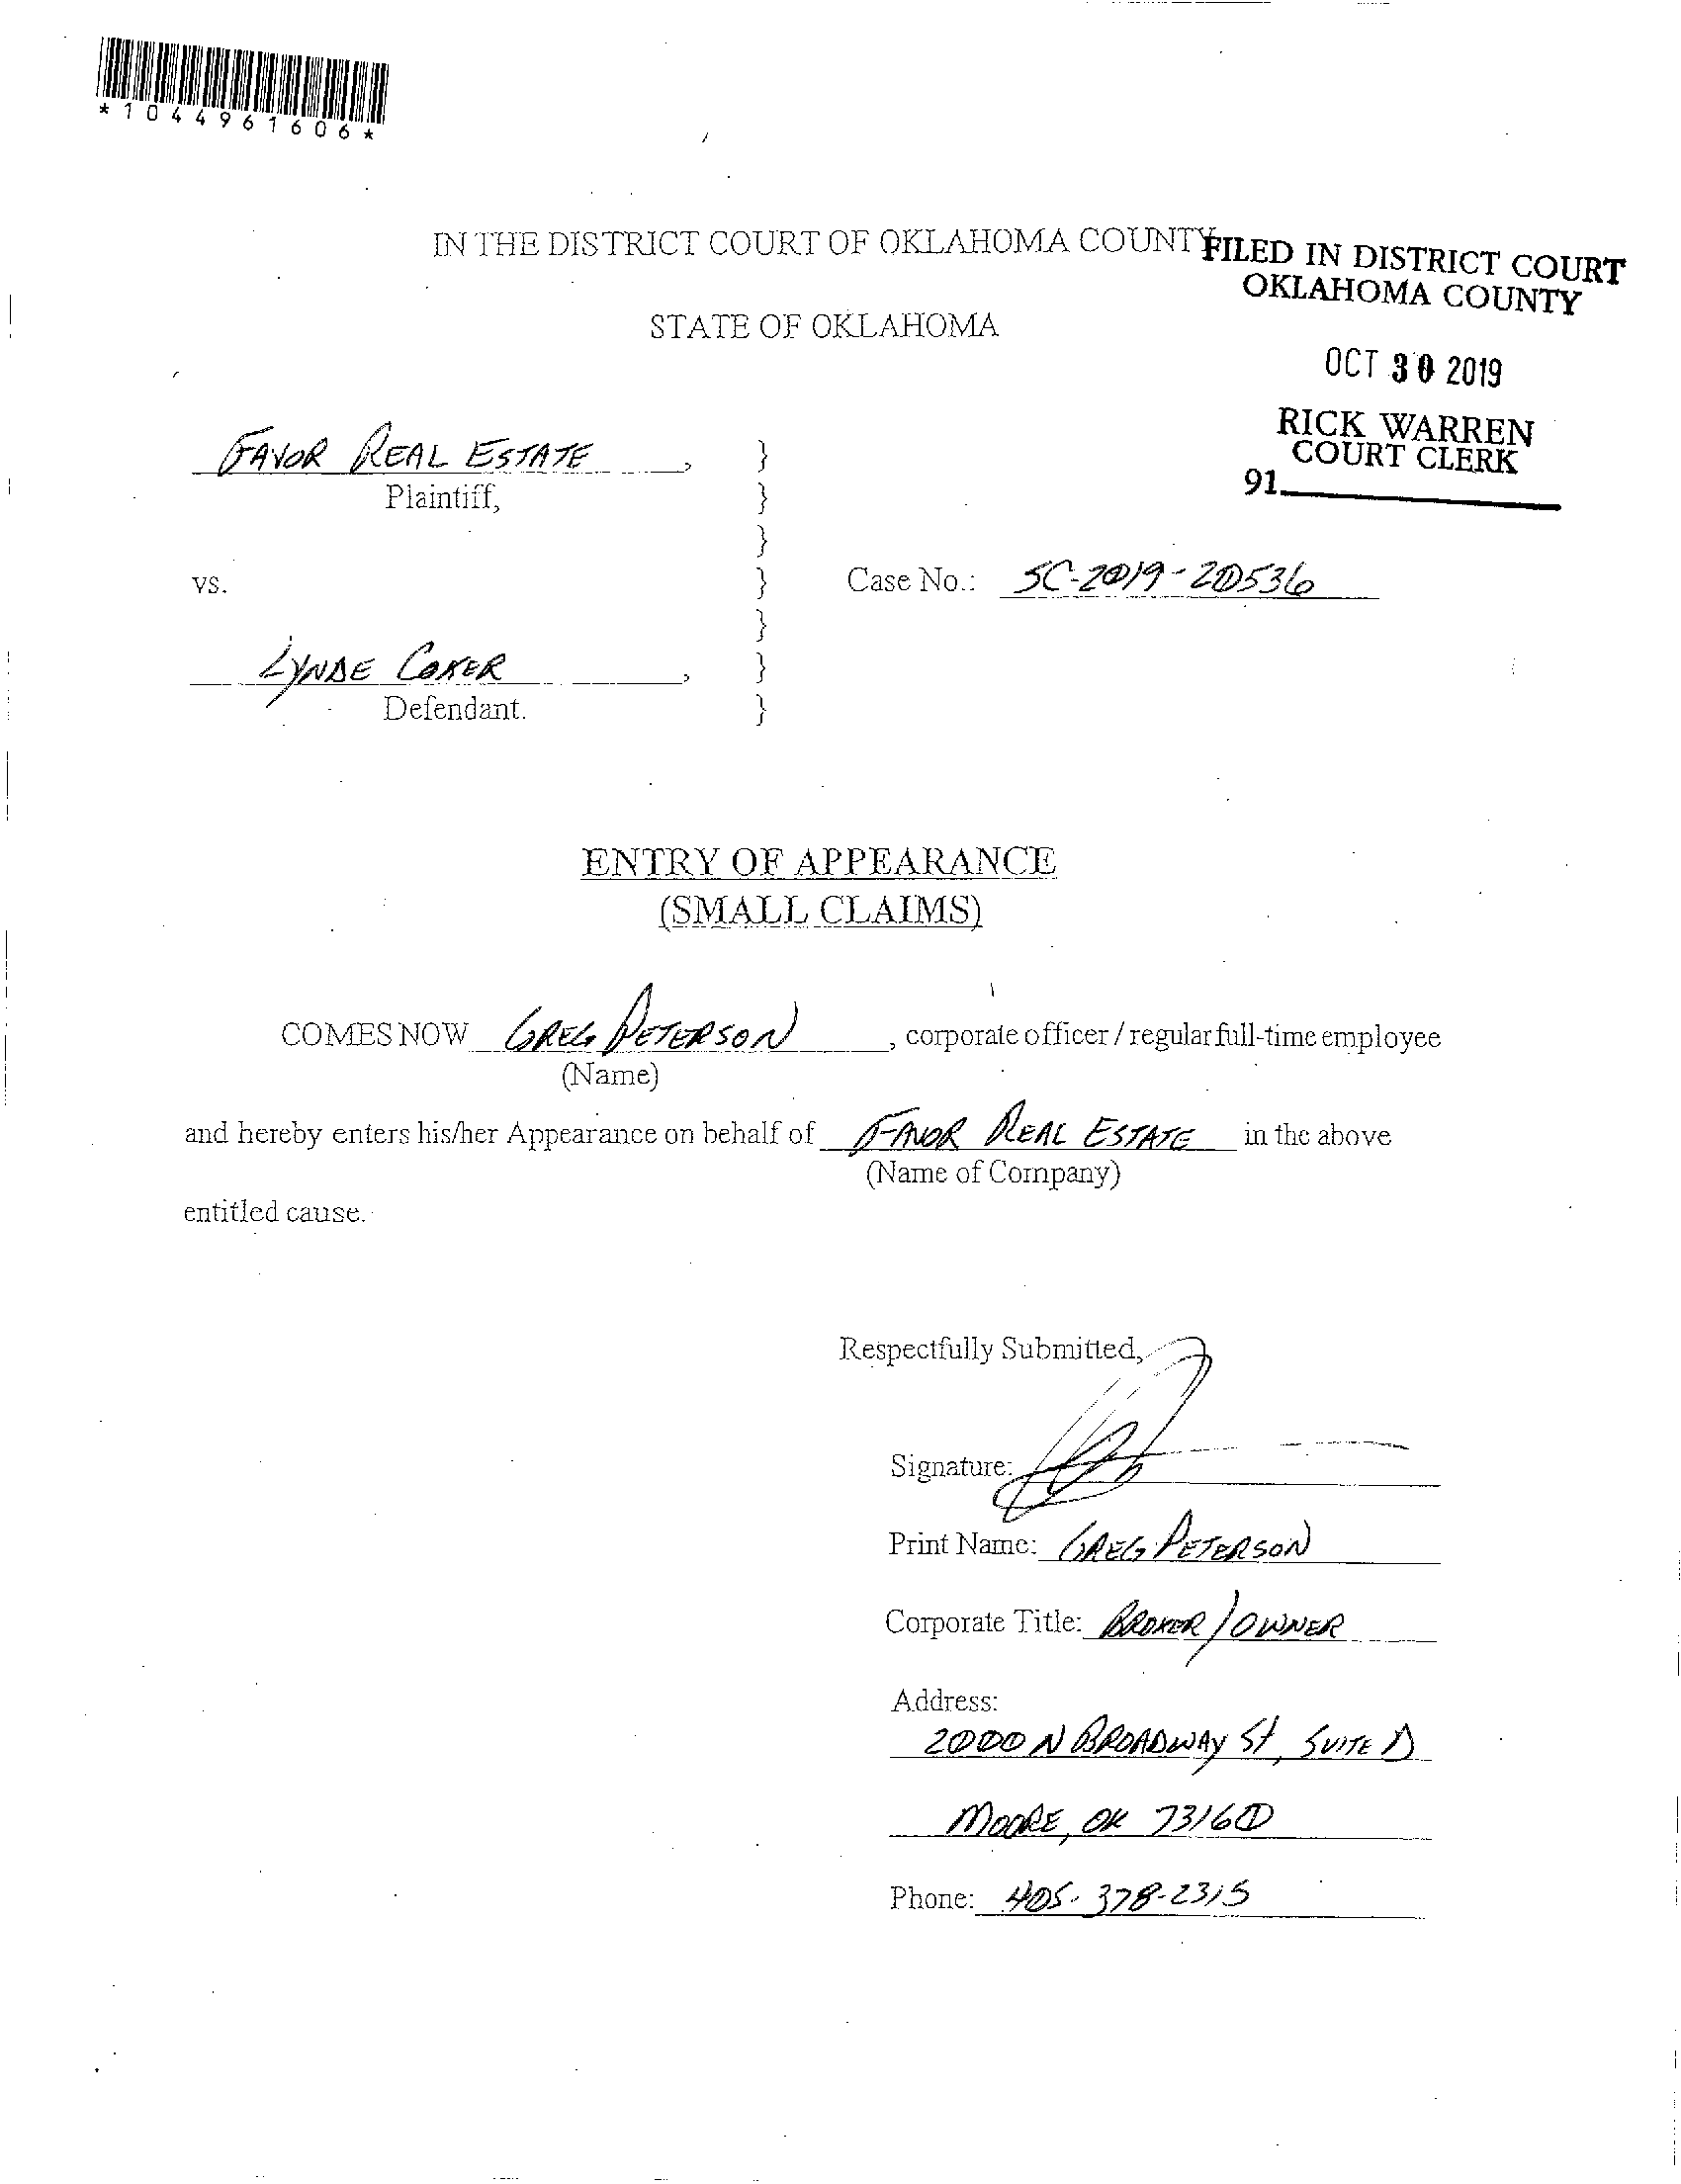 *1044961606*
IN THE DISTRICT COURT OF OKLAHOMA COUNTY
FILED IN DISTRICT COURT
OKLAHOMA COUNTY
STATE OF OKLAHOMA
OCT 30 2019
RICK WARREN
COURT CLERK
91
FAVOR REAL ESTATE, }
Plaintiff, }
}
vs. } Case No.: SC-2019-20536
}
LYNDE COKER, }
Defendant. }
ENTRY OF APPEARANCE
(SMALL CLAIMS)
COMES NOW GREG PETERSON, corporate officer / regular full-time employee
(Name)
and hereby enters his/her Appearance on behalf of FAVOR REAL ESTATE in the above
(Name of Company)
entitled cause.
Respectfully Submitted,
Signature:
Print Name: GREG PETERSON
Corporate Title: BROKER/OWNER
Address:
2000 N BROADWAY St, SUITE D
MOORE, OK 73160
Phone: 405-378-2315